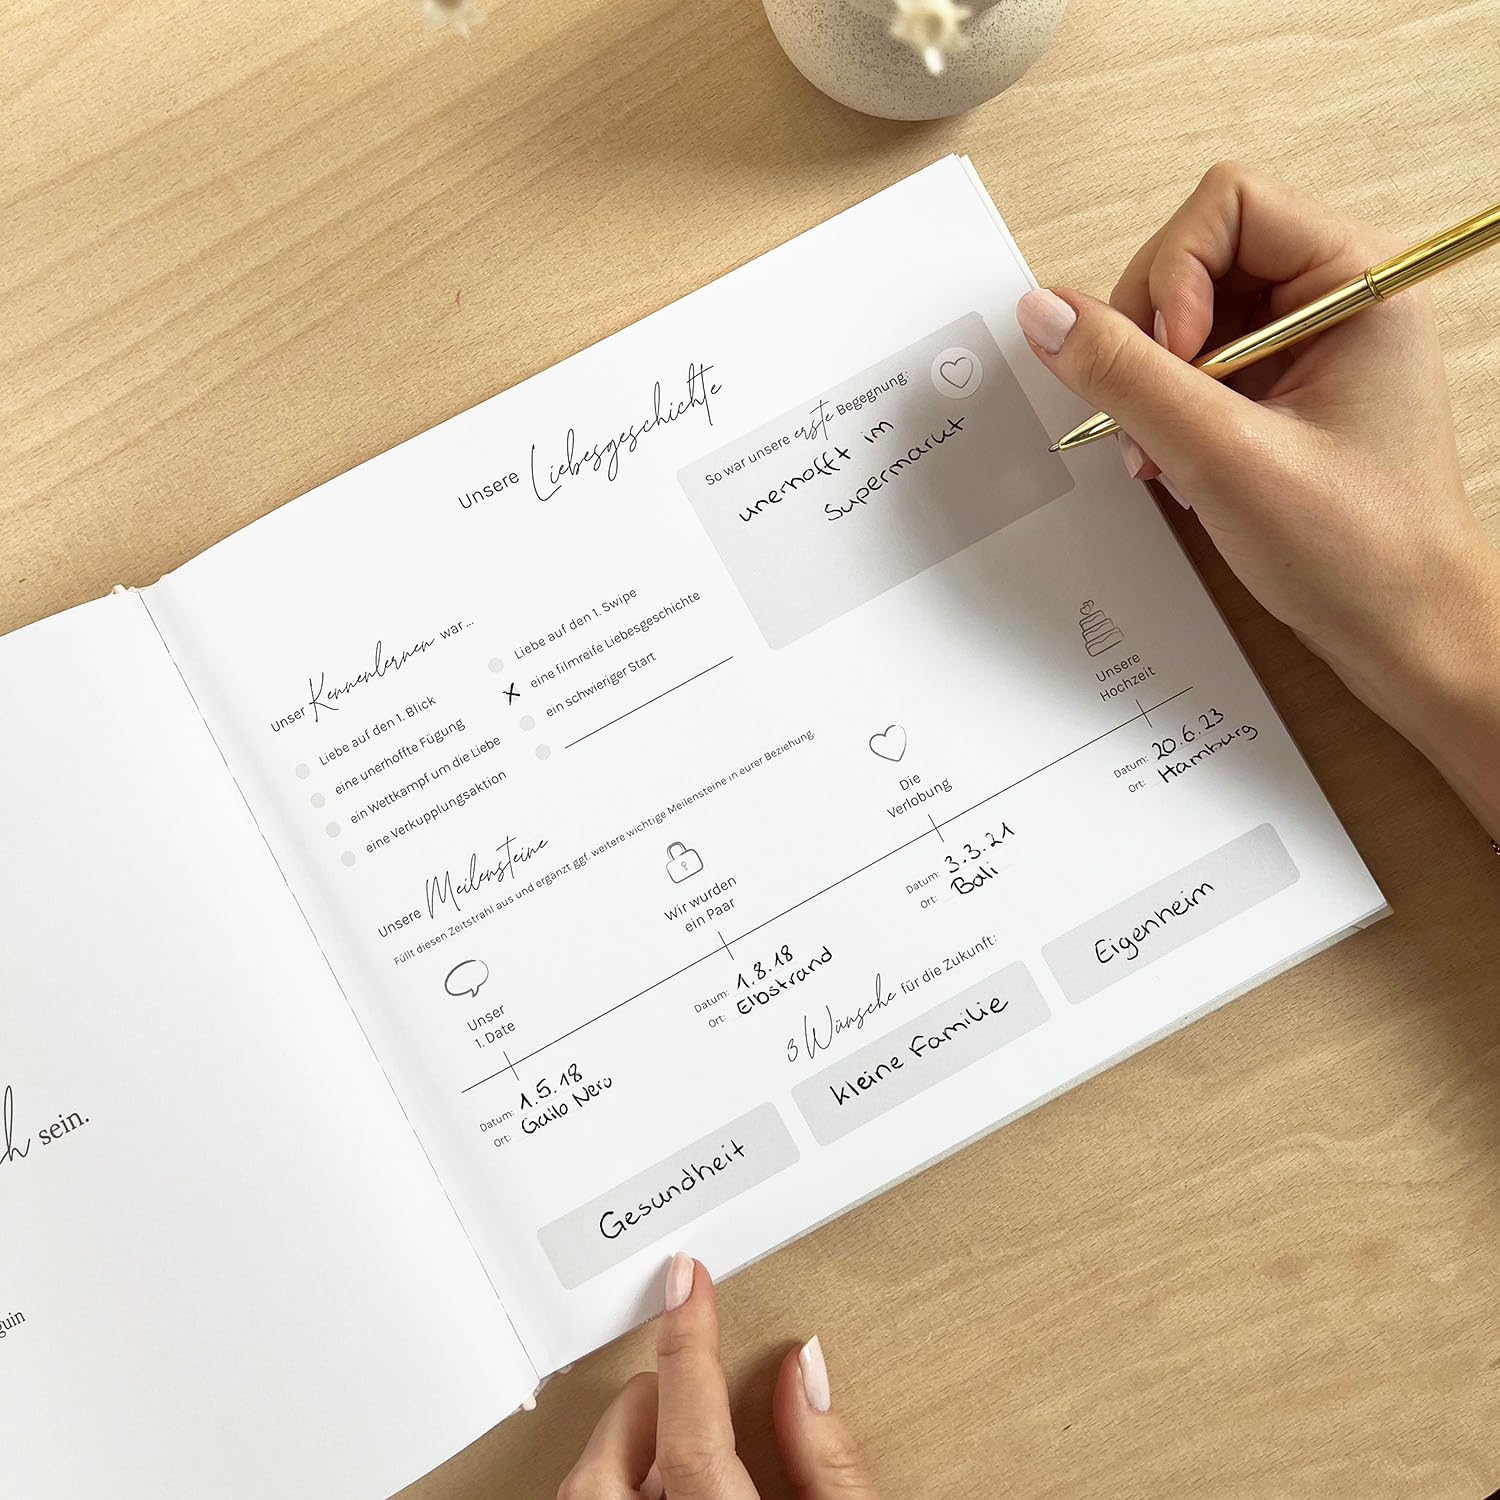 Unsere Liebesgeschichte
So war unsere erste Begegnung:
unerhofft im
Supermarkt
Unser Kennenlernen war...
Liebe auf den 1. Blick
eine unerhoffte Fügung
ein Wettkampf um die Liebe
eine Verkupplungsaktion
Liebe auf den 1. Swipe
X eine filmreife Liebesgeschichte
ein schwieriger Start
Unsere Meilensteine
Füllt diesen Zeitstrahl aus und ergänzt ggf. weitere wichtige Meilensteine in eurer Beziehung.
Unser
1. Date
Datum: 1.5.18
Ort: Gallo Nero
Wir wurden
ein Paar
Datum: 1.8.18
Ort: Elbstrand
Die
Verlobung
Datum: 3.3.21
Ort: Bali
Unsere
Hochzeit
Datum: 20.6.23
Ort: Hamburg
3 Wünsche für die Zukunft:
Gesundheit
kleine Familie
Eigenheim
sein.